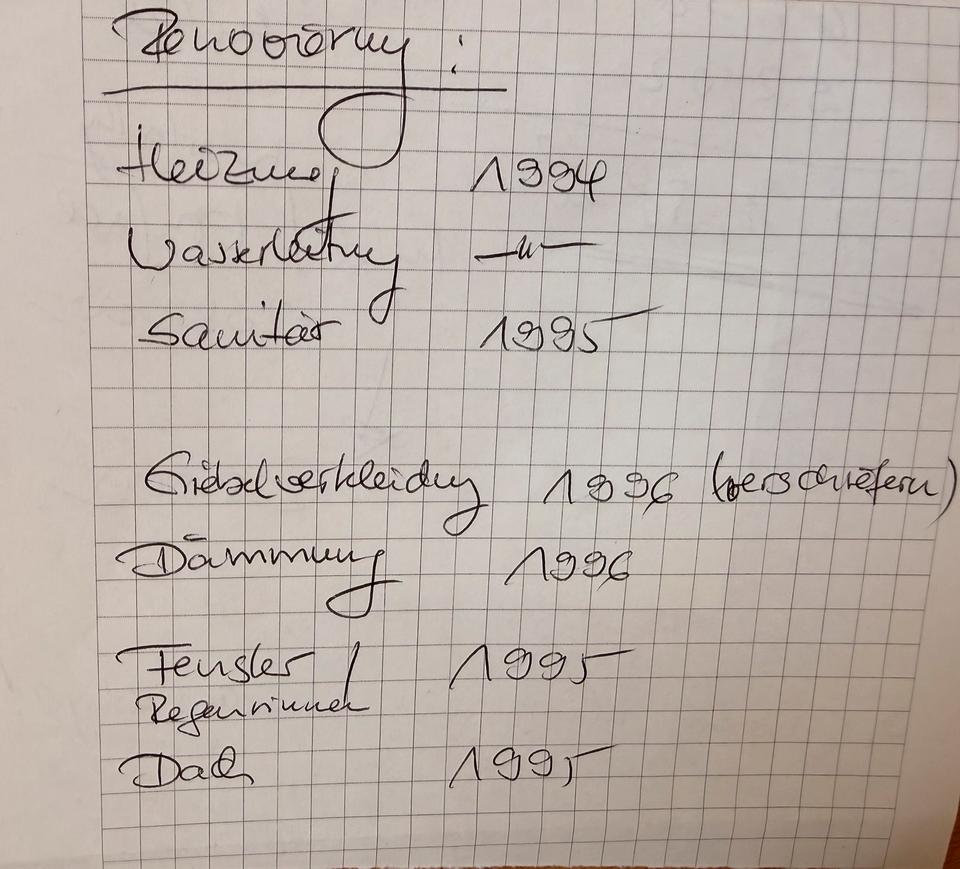 Renovierung :
Heizung 1994
Wasserleitung —"—
Sanitär 1995
Giebelverkleidung 1996 (verschiefern)
Dämmung 1996
Fenster / 1995
Regenrinnen
Dach 1995